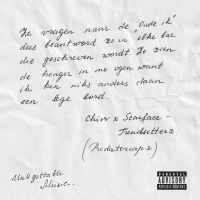 Ze vragen naar de "Oude ik"
dus beantwoord ze in elke bar
die geschreven wordt. Ze zien
de honger in me ogen want
ik ken niks anders dan
een lege bord.
Chivv x Scarface -
Trendsetterz.
(Piratensap 2)
Un4gettable
Music.
PARENTAL
ADVISORY
EXPLICIT CONTENT